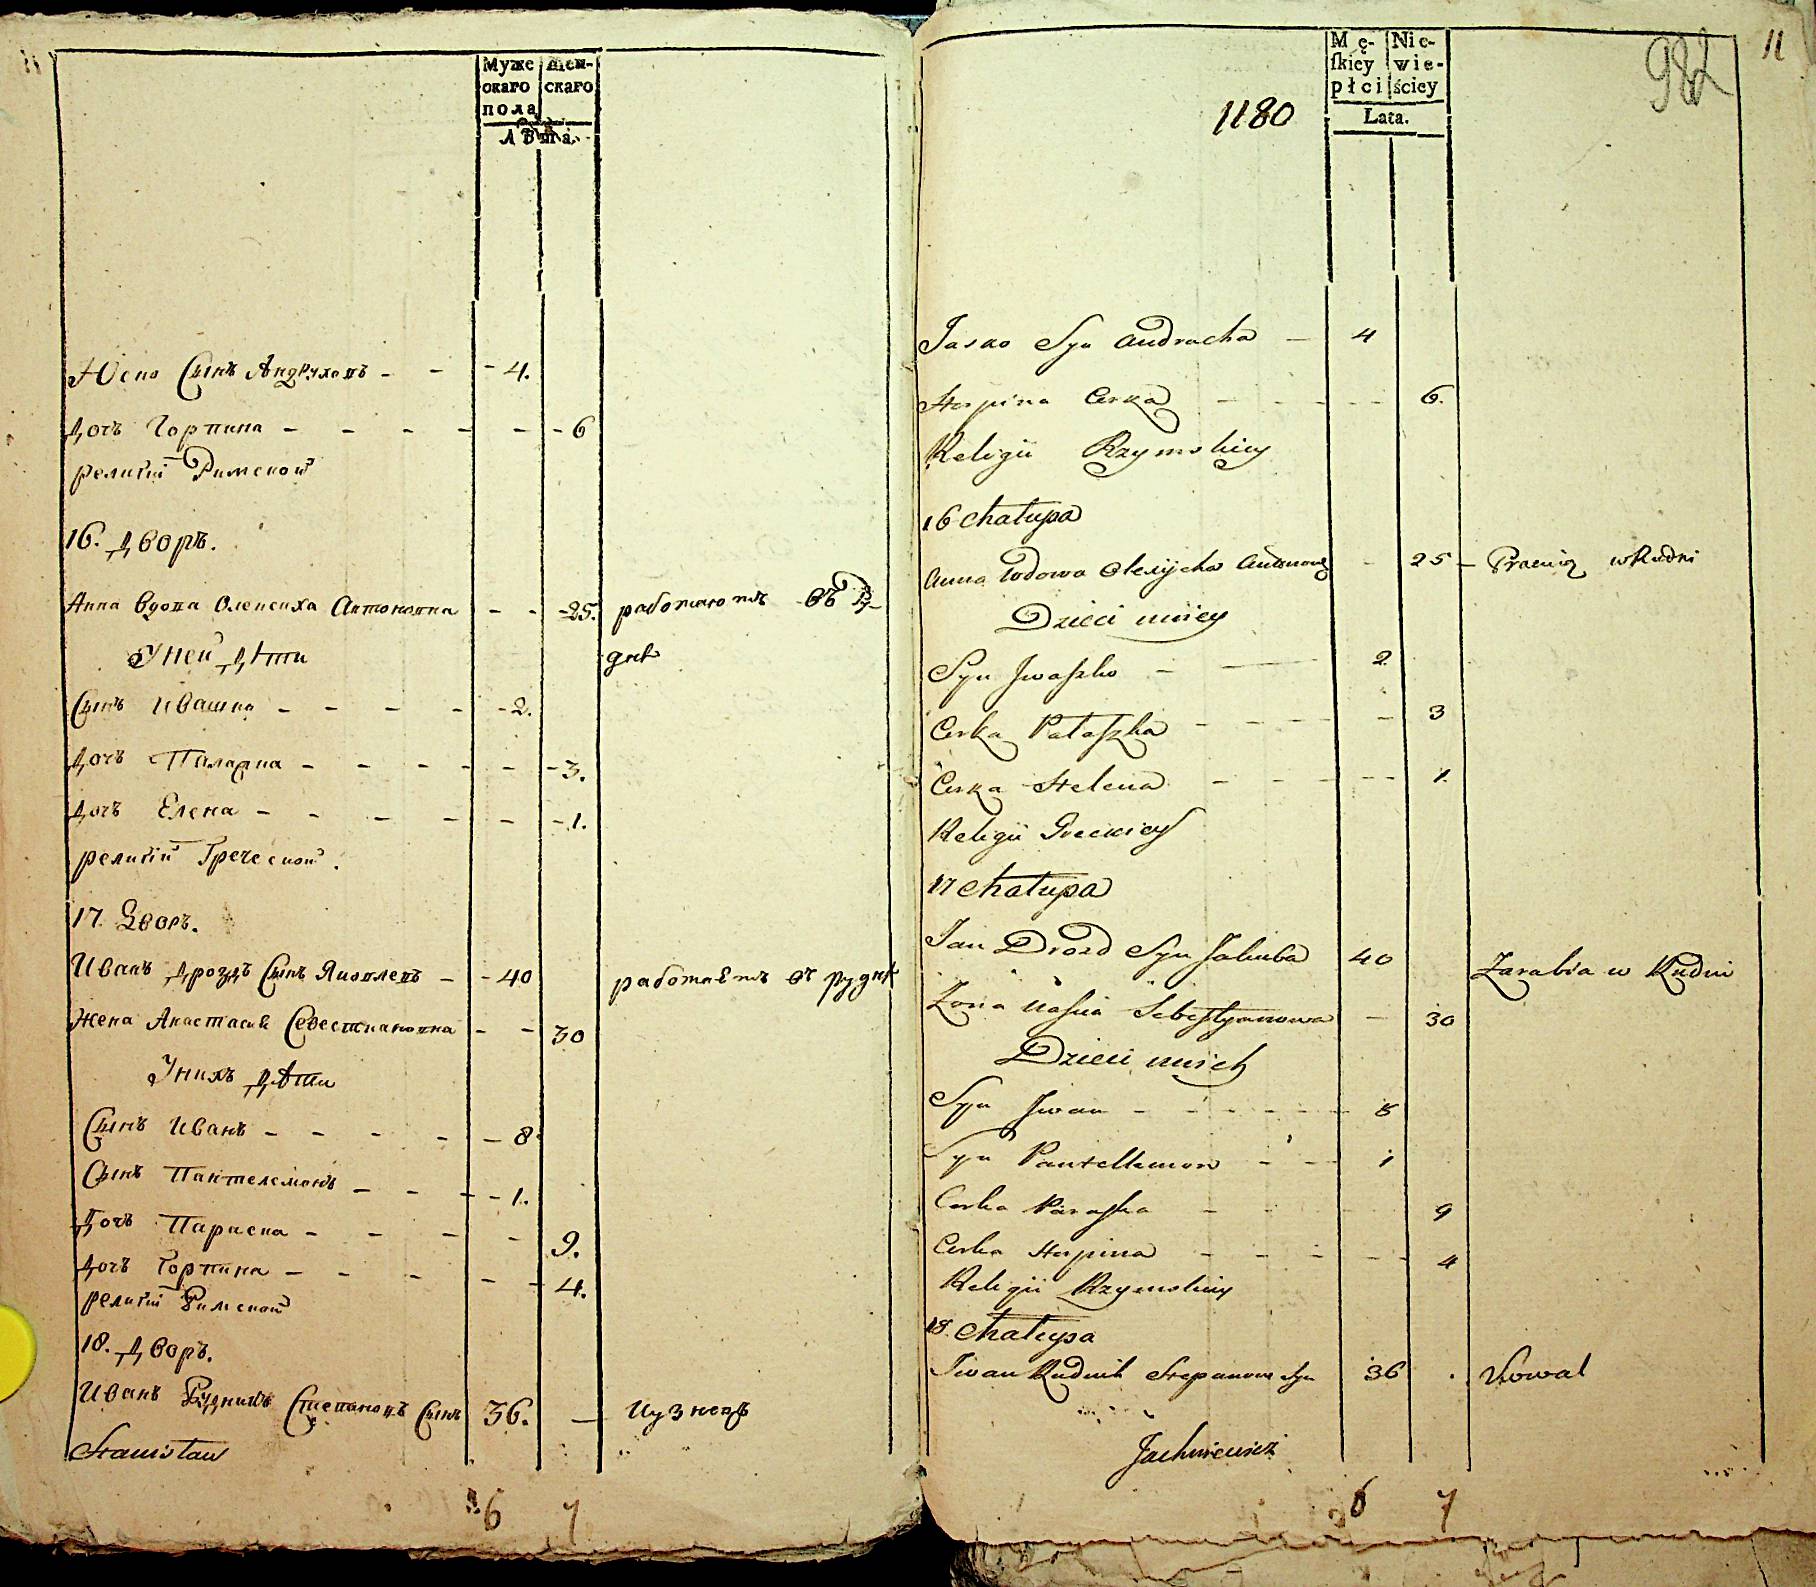 Муже
скаго
пола
Жен-
скаго
Лѣта.
Юско Сынъ Андруховъ - - - 4.
Дочъ Горпина - - - - - - 6
религiи Римской
16. Дворъ.
Анна вдова Олексиха Антоновна - - - 25. работаютъ въ Ру-
Уней Дѣти днѣ
Сынъ Ивашко - - - - - 2.
Дочъ Палашка - - - - - - 3.
Дочъ Елена - - - - - - 1.
религiи Греческой.
17. Дворъ.
Иванъ Дроздъ Сынъ Яковлевъ - - 40 работаетъ въ руднѣ
Жена Анастасия Себестиановна - - 30
Унихъ Дѣти
Сынъ Иванъ - - - - - 8.
Сынъ Пантелемонъ - - - - 1.
Дочъ Параска - - - - 9.
Дочъ Горпина - - - - - 4.
религiи Римской
18. Дворъ.
Иванъ Рудникъ Степановъ Сынъ 36. — Кузнецъ
Stanisław
6 7
982
11
1180
Mę-
ſkiey
płci
Nie-
wie-
ściey
Lata.
Jasko Syn Andrucha - 4
Horpina Corka - - - - - 6.
Religii Rzymskiey
16 Chałupa
Anna Wdowa Olexycha Antonowa - 25 - Pracuią w Rudni
Dzieci uniey
Syn Jwaszko - — 2
Corka Pałaszka - - - - - 3
Corka Helena - - - - - 1.
Religii Greckiey
17 Chałupa
Jan Drozd Syn Jakuba 40 Zarabia w Rudni
Zona Nascia Sebestyanowa - 30
Dzieci unich
Syn Jwan - - - - - - 8
Syn Pantellemon - - - 1
Corka Paraska - - - 9
Corka Horpina - - - - - - 4
Religii Rzymskiey
18. Chałupa
Jwan Rudnik Stepanow Syn 36 . Kowal
Jachniewicz
6 7